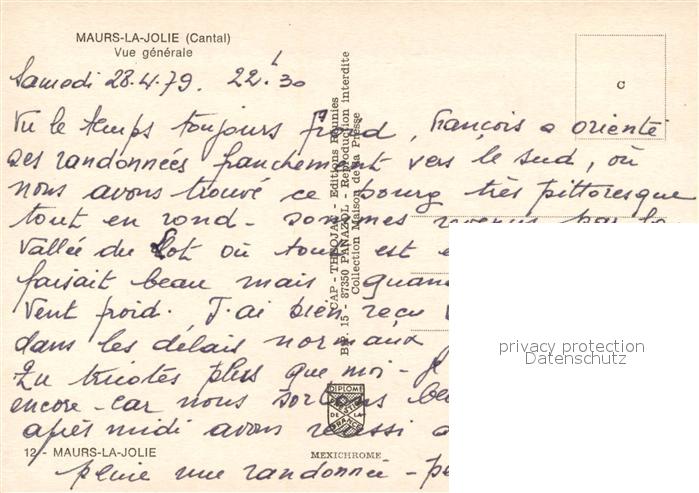 MAURS-LA-JOLIE (Cantal)
Vue générale
Samedi 28.4.79. 22h30
Vu le temps toujours froid, François a orienté
ses randonnées franchement vers le sud, où
nous avons trouvé ce bourg très pittoresque
tout en rond - sommes revenus par la
vallée du Lot où tout est
faisait beau mais quan
vent froid. J'ai bien reçu
dans les délais normaux
Tu tricotes plus que moi - je
encore - car nous sortons be
après midi avons réussi a
pleine une randonnée - pe
12 - MAURS-LA-JOLIE
CAP - THEOJAC - Editions Réunies
B.P. 15 - 87350 PANAZOL - Reproduction interdite
Collection Maison de la Presse
C
DIPLOME
PRESTIGE
DE LA
FRANCE
MEXICHROME
privacy protection
Datenschutz